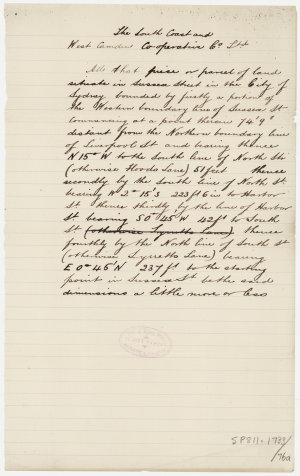 The South Coast and
West Camden Co-operative Co Ltd
All that piece or parcel of land
situate in Sussex Street in the City of
Sydney bounded by firstly a portion of
the Western boundary line of Sussex St
commencing at a point therein 74'9"
distant from the Northern boundary line
of Liverpool St and bearing thence
N 15° W to the South line of North St
(otherwise Hoods Lane) 51 feet thence
secondly by the South line of North St
bearing W 2° 15' S 223 ft 6 in to Harbor
St thence thirdly by the line of Harbor
St bearing S 0° 45' W 42 ft to South
St (otherwise Lynetts Lane) thence
fourthly by the North line of South St
(otherwise Lynetts Lane) bearing
E 0° 45' N 237 ft to the starting
point in Sussex St be the said
dimensions a little more or less
SP811.1733/
76a